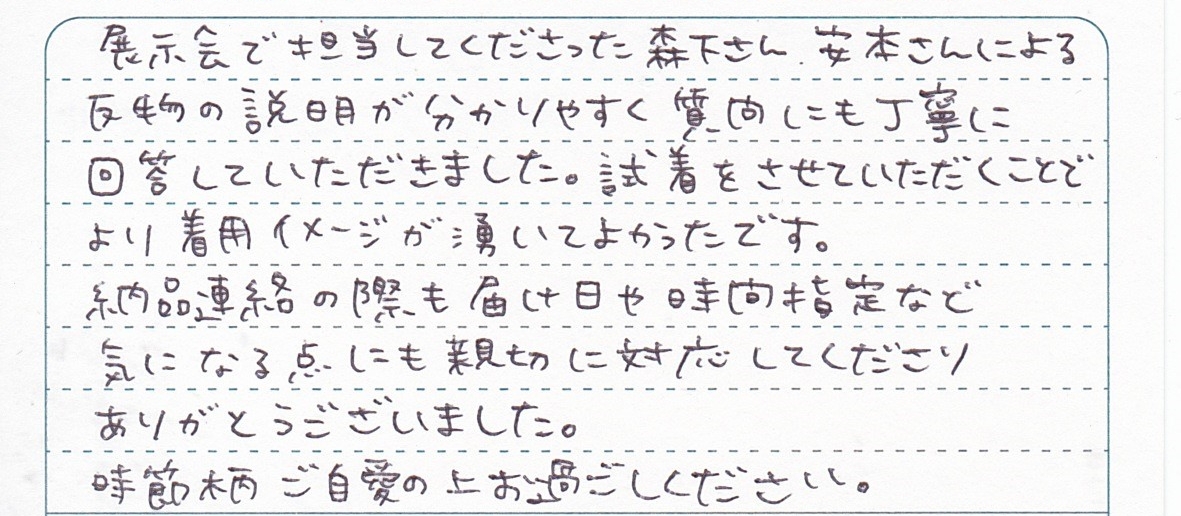 展示会で担当してくださった森下さん、安本さんによる
反物の説明が分かりやすく質問にも丁寧に
回答していただきました。試着をさせていただくことで
より着用イメージが湧いてよかったです。
納品連絡の際も届け日や時間指定など
気になる点にも親切に対応してくださり
ありがとうございました。
時節柄ご自愛の上お過ごしください。